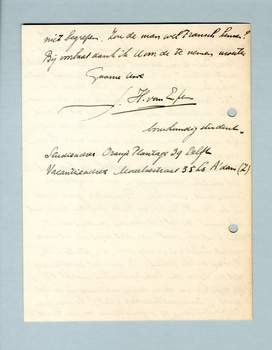 niet begrepen. Zou de man wel Fransch kennen?
Bij voorbaat dank ik U om de te nemen moeite
Gaarne Uwe
J. H. van
bouwkundig student.
Studieadres Oranje Plantage 39 Delft
Vacantieadres Moreelsestraat 35 A'dam (Z)